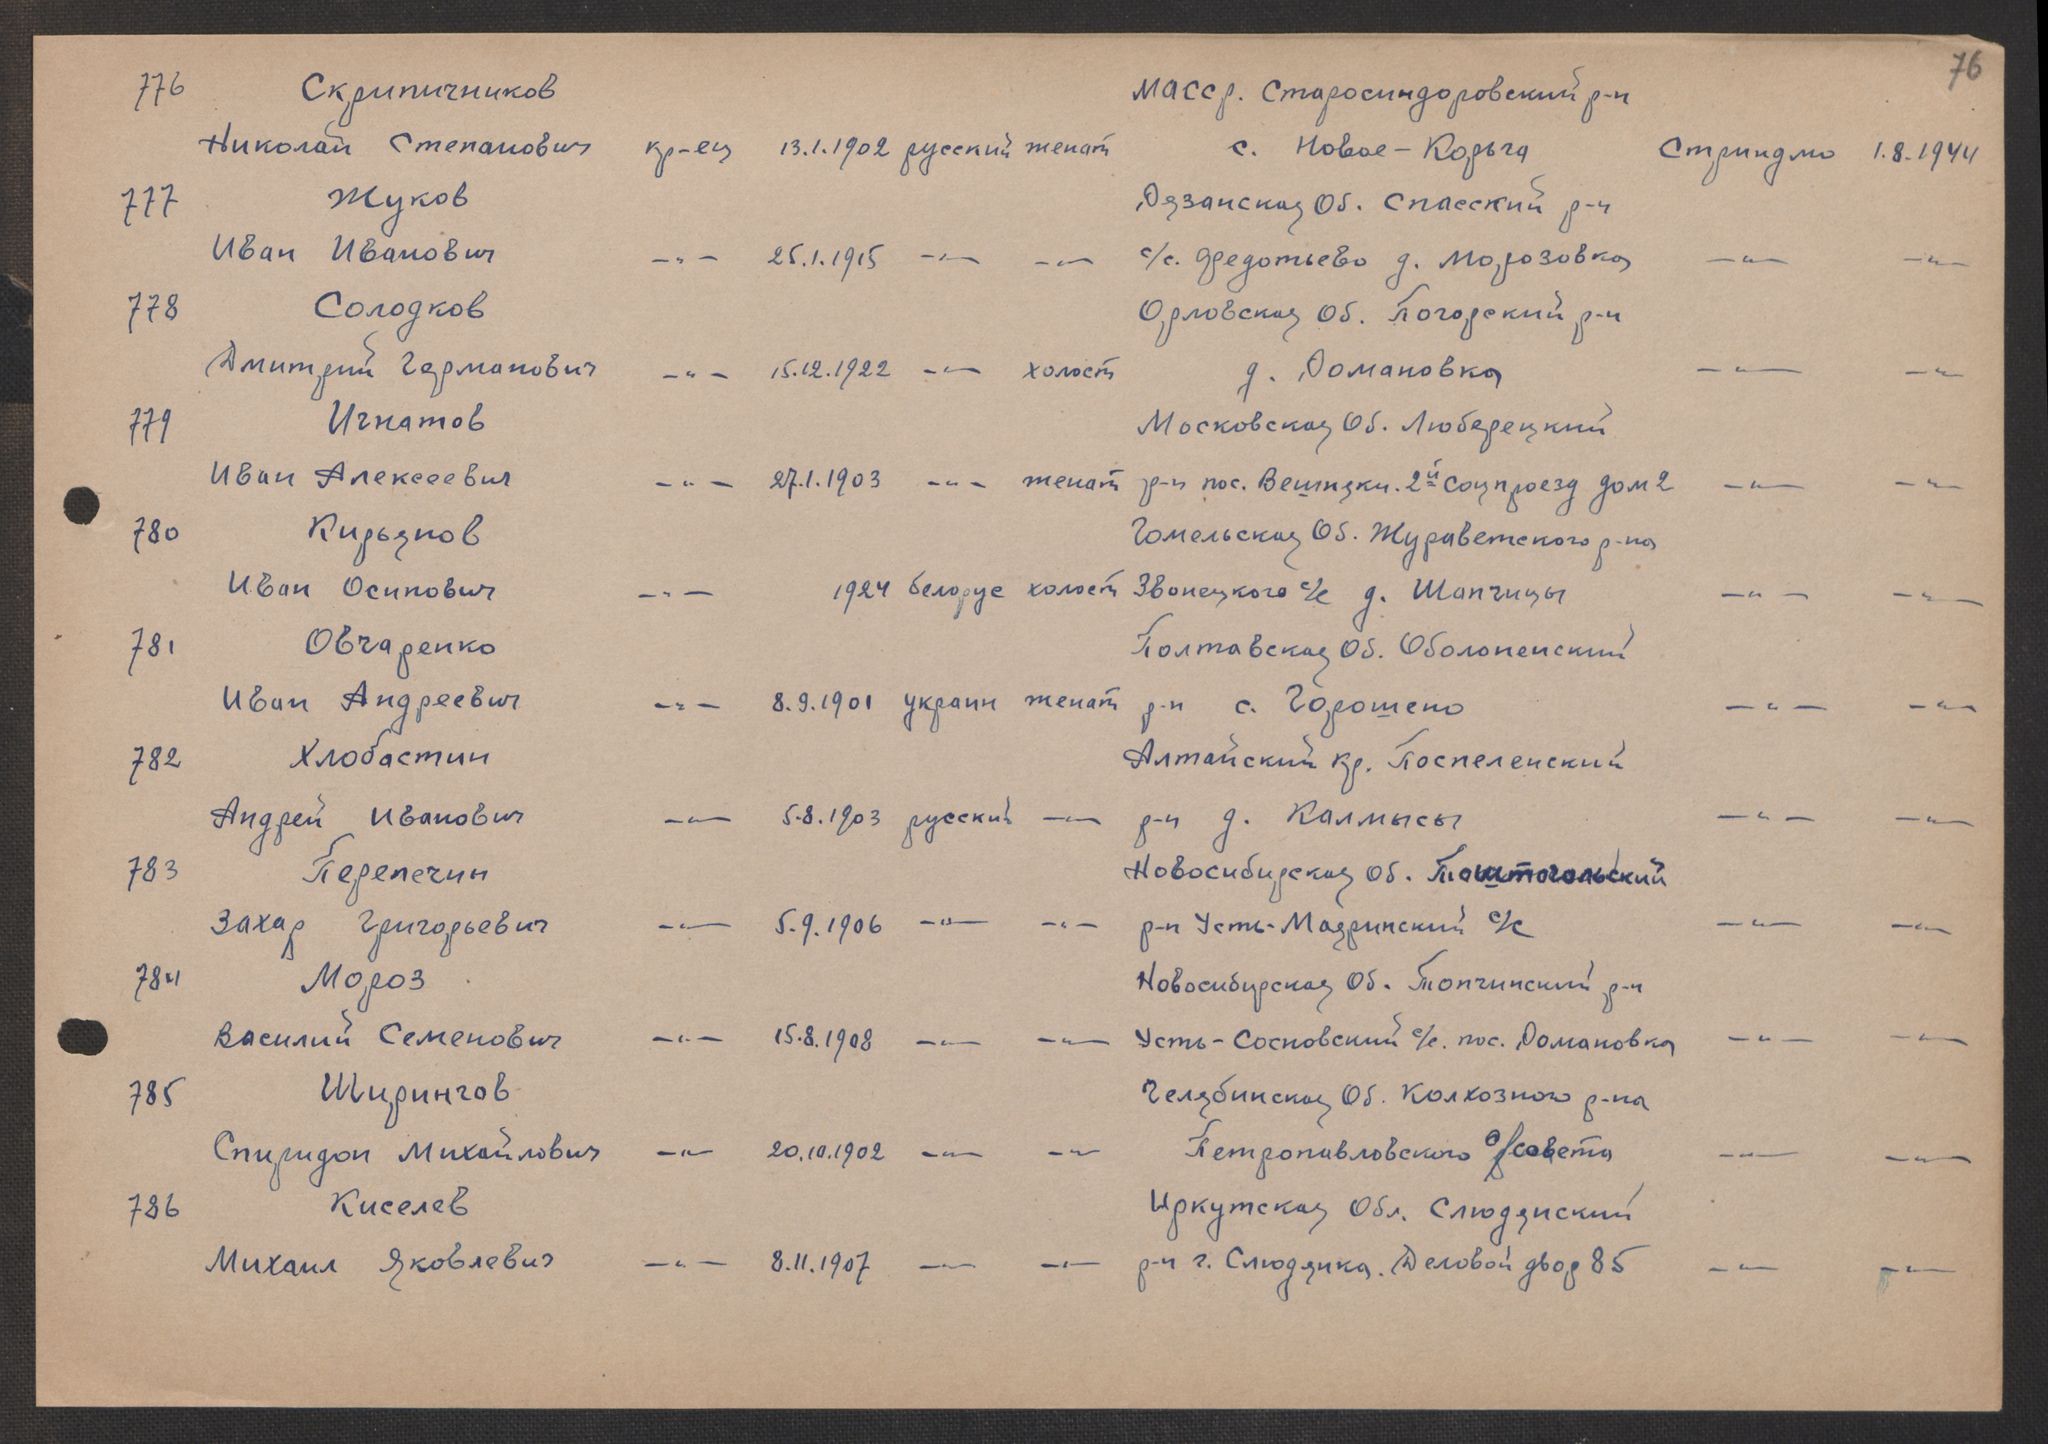 76
776 Скрипичников МАССР. Старосиндоровский р-н
Николай Степанович кр-ец 13.1.1902 русский женат с. Новое-Корьга Стриндмо 1.8.1944
777 Жуков Рязанская Об. Спасский р-н
Иван Иванович —"— 25.1.1915 —"— —"— с/с. Федотьево д. Морозовка —"— —"—
778 Солодков Орловская Об. Погорский р-н
Дмитрий Германович —"— 15.12.1922 —"— холост д. Романовка —"— —"—
779 Игнатов Московская Об. Люберецкий
Иван Алексеевич —"— 27.1.1903 —"— женат р-н пос. Вешняки. 2й Соцпроезд дом 2 —"— —"—
780 Кирьянов Гомельская Об. Жураветского р-на
Иван Осипович —"— 1924 белорус холост Звонецкого с/с д. Шапчицы —"— —"—
781 Овчаренко Полтавская Об. Оболоненский
Иван Андреевич —"— 8.9.1901 украин женат р-н с. Горошено —"— —"—
782 Хлобастин Алтайский кр. Поспеленский
Андрей Иванович —"— 5.8.1903 русский —"— р-н д. Калмысы —"— —"—
783 Перепечин Новосибирская Об. Таштогольский
Захар Григорьевич —"— 5.9.1906 —"— —"— р-н Усть-Мазринский с/с —"— —"—
784 Мороз Новосибирская Об. Топчинский р-н
Василий Семенович —"— 15.8.1908 —"— —"— Усть-Сосновский с/с. пос. Романовка —"— —"—
785 Ширингов Челябинская Об. Колхозного р-на
Спиридон Михайлович —"— 20.10.1902 —"— —"— Петропавловского с/совета —"— —"—
786 Киселев Иркутская Обл. Слюдянский
Михаил Яковлевич —"— 8.11.1907 —"— —"— р-н г. Слюдянка. Деловой двор 85 —"— —"—